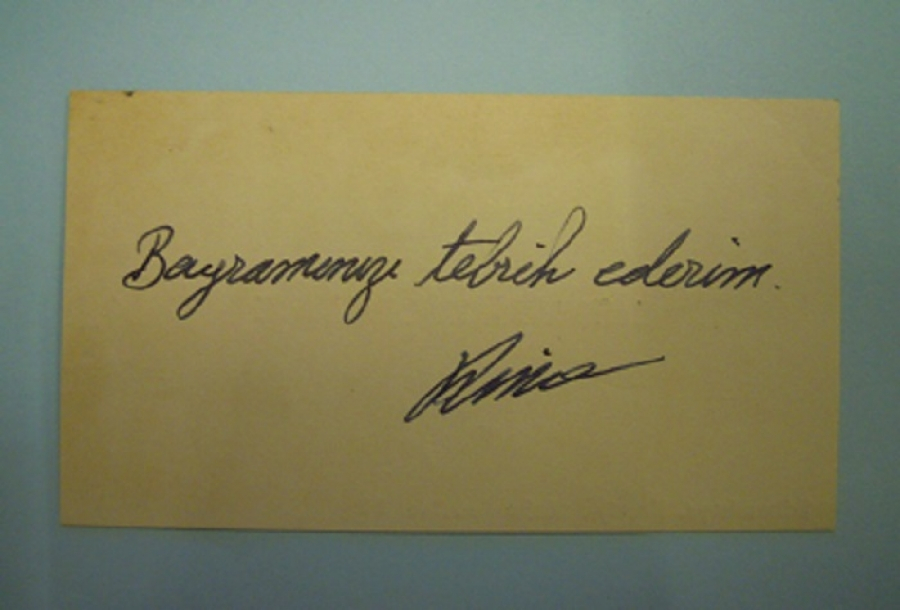 Bayramınızı tebrik ederim.